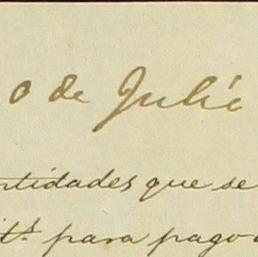 o de Julio
ntidades que se
it.s para pago